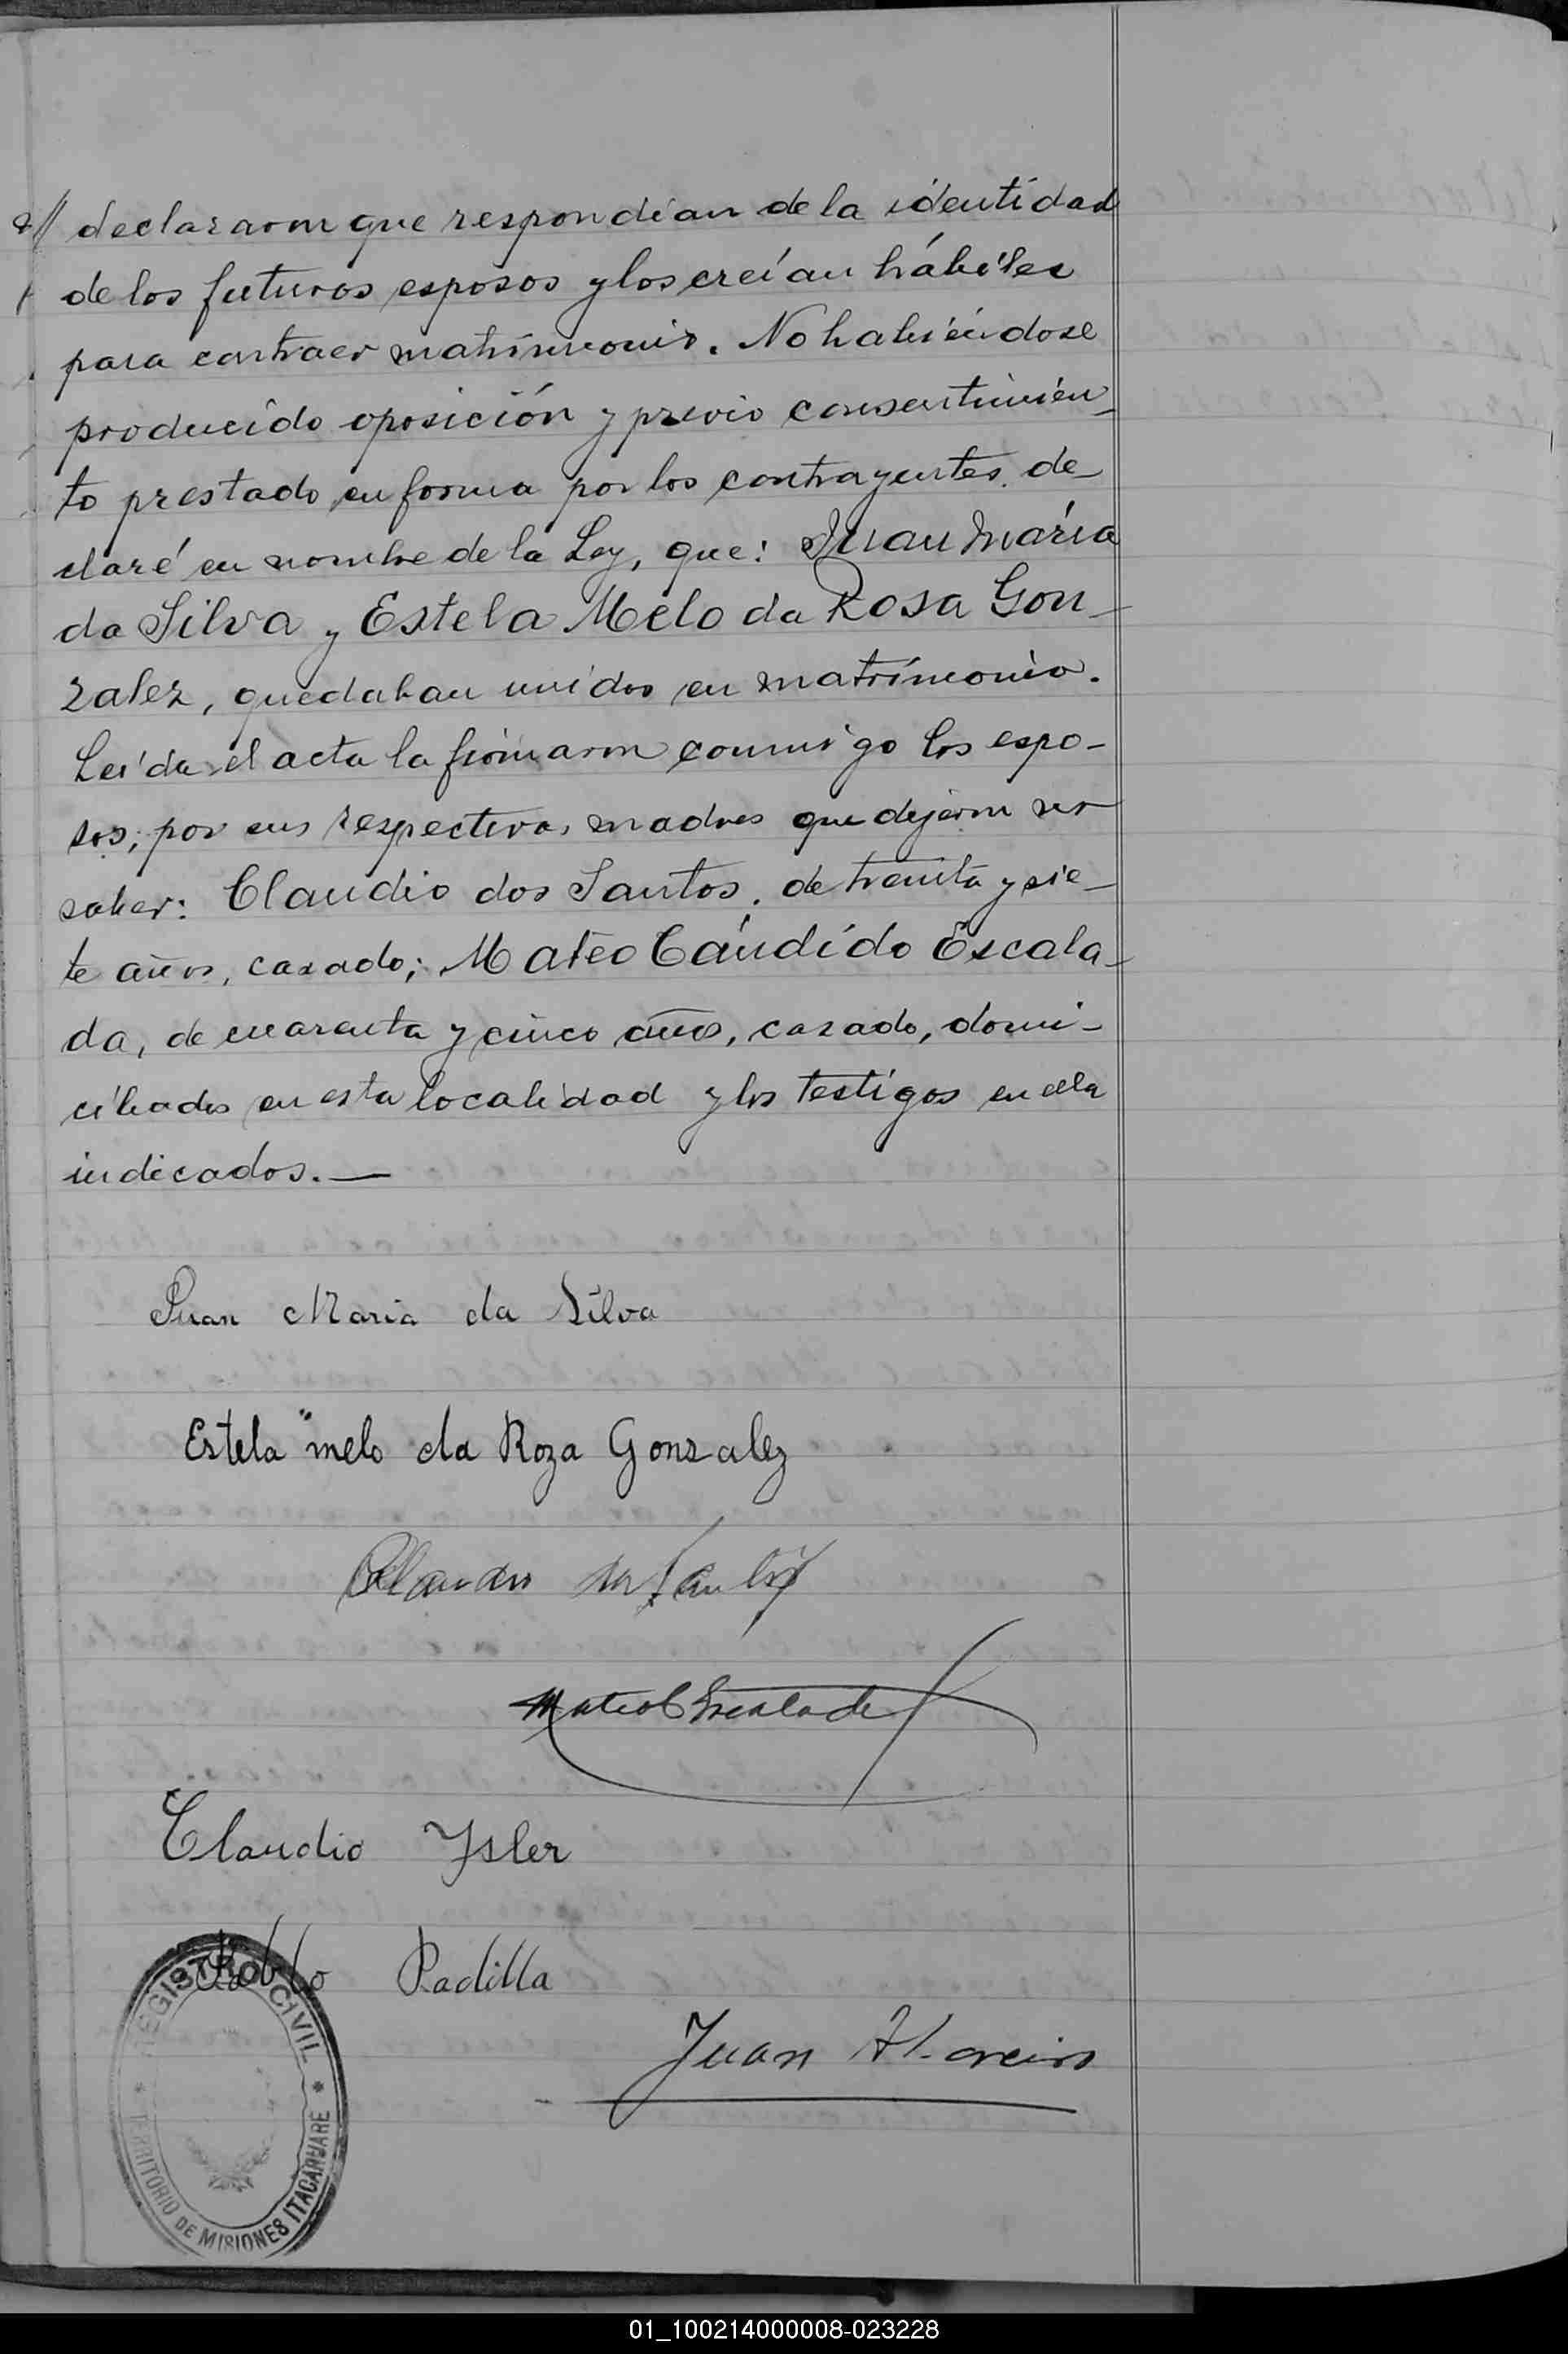 // declararon que respondían de la identidad
de los futuros esposos y los creían hábiles
para contraer matrimonio. No habiéndose
producido oposición y previo consentimien-
to prestado en forma por los contrayentes, de-
claré en nombre de la Ley, que: Juan María
da Silva y Estela Melo da Rosa Gon-
zalez, quedaban unidos en matrimonio.
Leída el acta la firmaron conmigo los espo-
sos; por sus respectivas madres que dijeron no
saber: Claudio dos Santos, de treinta y sie-
te años, casado; Mateo Cándido Escala-
da, de cuarenta y cinco años, casado, domi-
ciliados en esta localidad y los testigos en ella
indicados.—
Juan Maria da Silva
Estela melo da Roza Gonzalez
Claudio dos Santos
Mateo C Escalada
Claudio Ysler
Pablo Padilla
Juan
REGISTRO CIVIL
TERRITORIO DE MISIONES ITACARUARE
01_100214000008-023228